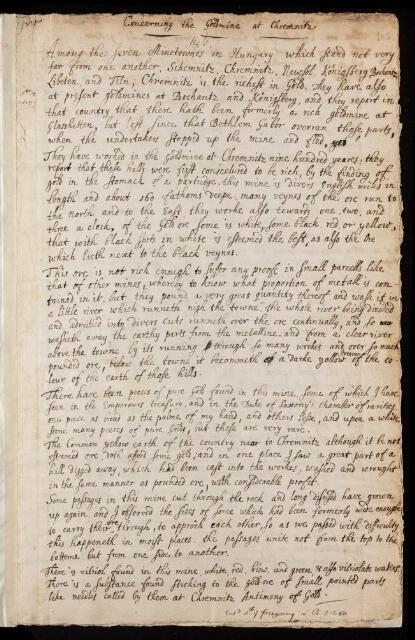 Concerning the Goldmine at Chremnitz
Among the seven Minetownes in Hungary which stand not very
far from one another, Schemnitz, Chremnitz, Newsol, Königsberg, Bochantz
Libeten, and Tiln, Chremnitz is the richest in Gold, They have also
at present goldmines at Bochantz and Königsberg, and they report in
that country that there hath been formerly a rich goldmine at
Glasshitten, but lost since that Bethlem Gabor overran those parts,
when the undertakers stopped up the mine and fled.
They have worked in the Goldmine at Chremnitz nine hundred yeares, they
report that these hills were first conjectured to be rich, by the finding of
gold in the stomack of a partridge. this mine is divers English miles in
length and about 160 fathoms deepe, many veynes of the ore run to
the north and to the East, they worke also towards one, two, and
three a clock, of the Gold ore some is white, some black red or yellow,
that with black spots in white is esteemed the best, as also the ore
which lieth next to the black veynes.
This ore is not rich enough to suffer any proofe in small parcells like
that of other mines, whereby to know what proportion of metall is con-
tained in it. but they pound a very great quantity thereof and wash it in
a little river which runneth nigh the towne, the whole river being divided
and admitted into divers cuts runneth over the ore continually, and so
washeth away the earthy parts from the metalline. and from a cleer river
above the towne by its running through so many workes and over so much
pounded ore, below the towne it becommeth of a darke yellow the co-
lour of the earth of those hills.
There have been peeces of pure Gold found in this mine, some of which I have
seen in the Emperours treasury, and in the Duke of Saxony's chamber of rarities
one peece as broad as the palme of my hand, and others lesse, and upon a white
stone many peeces of pure Gold, but these are very rare.
The Common yellow earth of the country near to Chremnitz although it be not
esteemed ore doth afford some gold, and in one place I saw a great part of a
hill digged away, which had been cast into the workes, washed and wrought
in the same manner as pounded ore, with considerable profit.
Some passages in this mine cut through the rock and long disused have grown
up again. and I observed the sides of some which had been formerly wide enough
to carry their ore through, to approch each other, so as we passed with difficulty
this happeneth in moist places. the passages unite not from the top to the
bottome but from one side to another.
There is vitriol found in this mine white red, blew, and green, & also vitriolate waters.
There is a substance found sticking to the gold ore of small pointed parts
like needles called by them at Chremnitz Antimony of Gold.